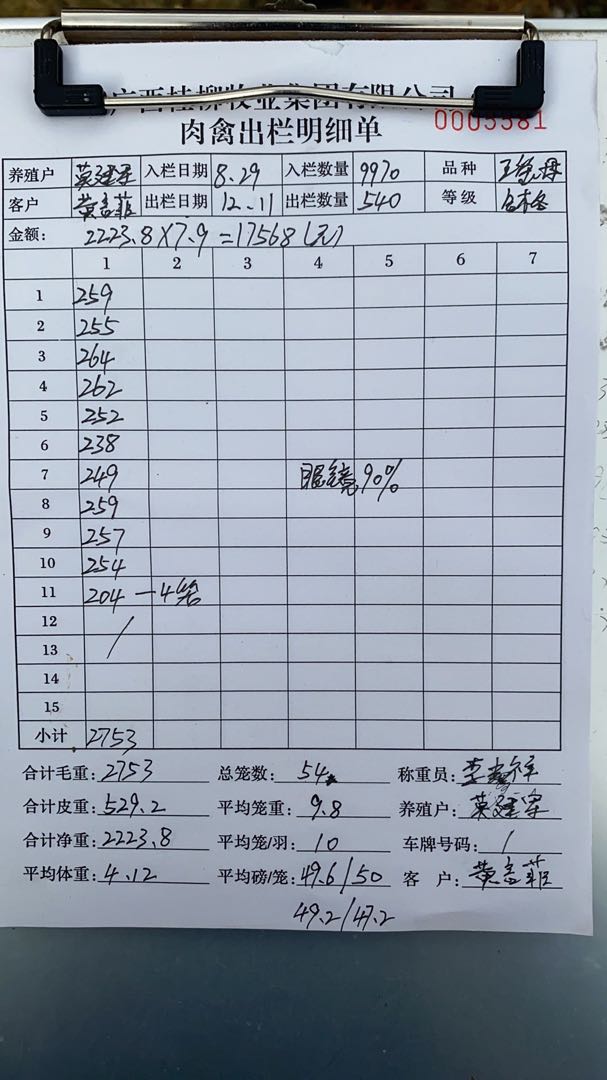 广西桂柳牧业集团有限公司
肉禽出栏明细单
0005581
养殖户 莫建军 入栏日期 8.29 入栏数量 9970 品种
客户 黄言菲 出栏日期 12.11 出栏数量 540 等级 合格
金额: 2223.8×7.9=17568(元)
1 2 3 4 5 6 7
1 259
2 255
3 264
4 262
5 252
6 238
7 249 眼镜90%
8 259
9 257
10 254
11 204 — 4笼
12
13 /
14
15
小计 2753
合计毛重: 2753 总笼数: 54 称重员:
合计皮重: 529.2 平均笼重: 9.8 养殖户: 莫建军
合计净重: 2223.8 平均笼/羽: 10 车牌号码: /
平均体重: 4.12 平均磅/笼: 49.6/50 客 户: 黄言菲
49.2/47.2